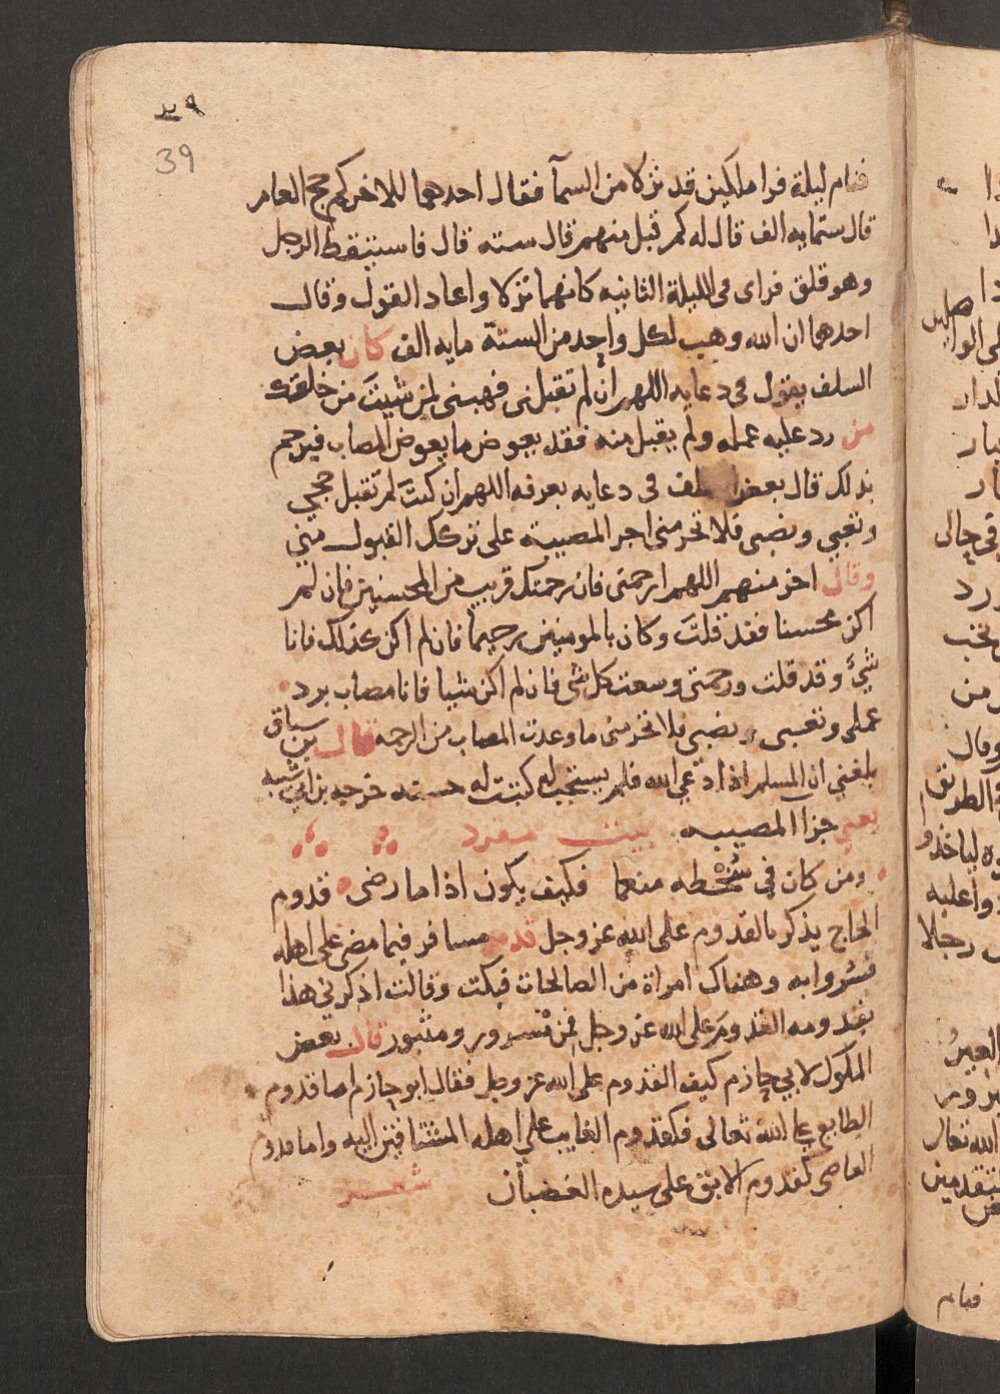 39
فنام ليلة فرا ملكين قد نزلا من السمآ فقال احدهما للاخر كم حج العام
قال ستمايه الف قال له كم قبل منهم قال سته قال فاستيقظ الرجل
وهو قلق فراى فى الليلة الثانيه كانهما نزلا واعاد القول وقال
احدهما ان الله وهب لكل واحد من الستة مايه الف كان بعض
السلف يقول فى دعايه اللهم ان لم تقبلنى فهبنى لمن شيت من خلقك
من رد عليه عمله ولم يقبل منه فقد يعوض ما يعوض المصاب فيرحم
بذلك قال بعض السلف فى دعايه بعرفه اللهم ان كنت لم تقبل حجي
وتعبي ونصبى فلا تحرمنى اجر المصيبة على تركك القبول مني
وقال اخر منهم اللهم ارحمنى فان رحمتك قريب من المحسنين فان لم
اكن محسنا فقد قلت وكان بالمومنين رحيما فان لم اكن كذلك فانا
شيء وقد قلت ورحمتى وسعت كل شى فان لم اكن شيا فانا مصاب برد
عملى وتعبى ونصبى فلا تحرمنى ما وعدت المصاب من الرحمه قال بن سياق
بلغني ان المسلم اذا دعى الله فلم يستجب له كتبت له حسنه خرجه بن ابي شيبه
يعنى جزا المصيبه بيت مفرد
ومن كان في سخطه منعما فكيف يكون اذا ما رضى قدوم
الحاج يذكر بالقدوم على الله عز وجل قدم مسافر فيما مضى على اهله
فسروا به وهناك امراة من الصالحات فبكت وقالت اذكرني هذا
بقدومه القدوم على الله عز وجل فمن مسرور ومثبور قال بعض
الملوك لابي حازم كيف القدوم على الله عز وجل فقال ابو حازم اما قدوم
الطايع على الله تعالى فكقدوم الغايب على اهله المشتاقين اليه واما قدوم
العاصى كقدوم الابق على سيده الغضبان شعر